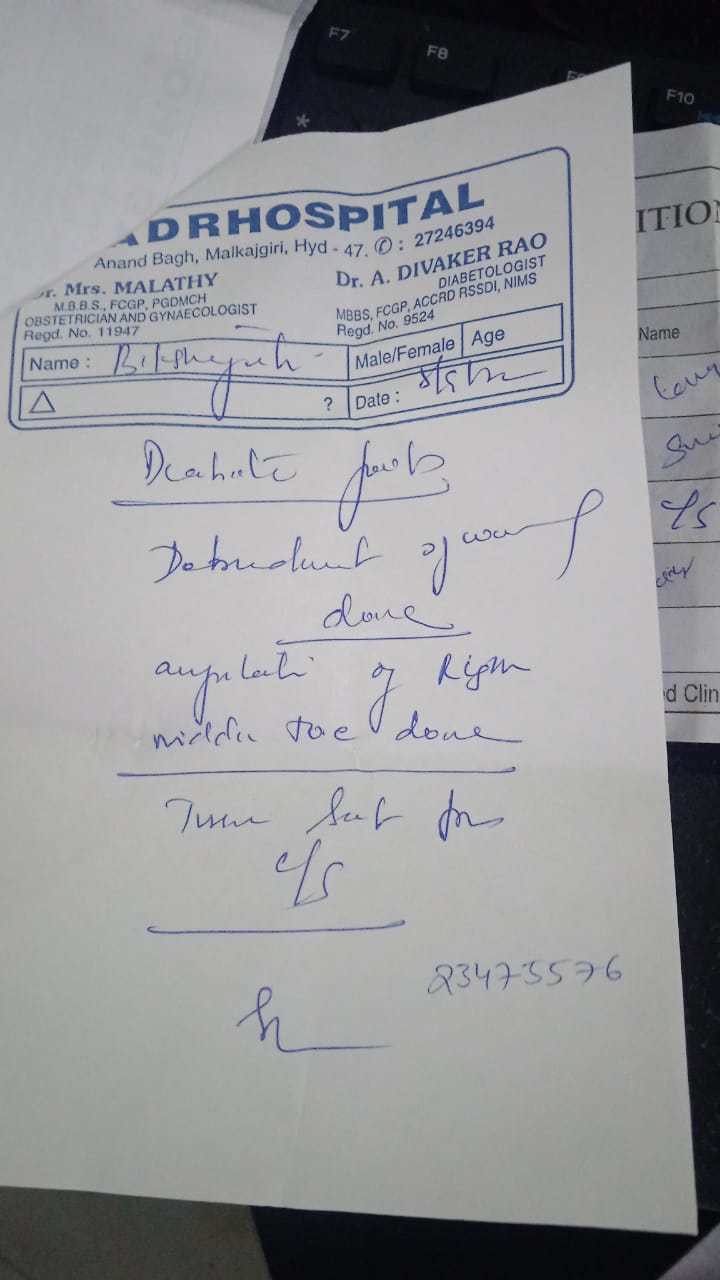 F7
F8
F10
ADRHOSPITAL
Anand Bagh, Malkajgiri, Hyd - 47. ✆ : 27246394
Dr. Mrs. MALATHY
M.B.B.S., FCGP, PGDMCH
OBSTETRICIAN AND GYNAECOLOGIST
Regd. No. 11947
Dr. A. DIVAKER RAO
DIABETOLOGIST
MBBS, FCGP, ACCRD RSSDI, NIMS
Regd. No. 9524
Name :
Male/Female
Age
△ ?
Date :
Diabetic foot
Debridement of wound
done
amputation of Right
middle toe done
Tissue sent for
c/s
23473576
ITION
Name
c/s
d Clin